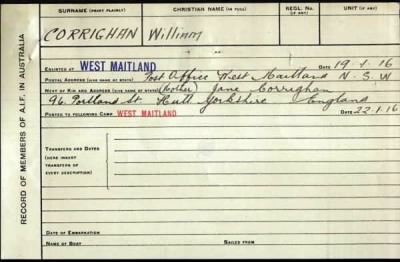 SURNAME (PRINT PLAINLY) CHRISTIAN NAME (IN FULL) REGL. NO. (IF ANY) UNIT (IF ANY)
CORRIGHAN William
ENLISTED AT WEST MAITLAND DATE 19-1-16
POSTAL ADDRESS (GIVE NAME OF STATE) Post Office West Maitland N.S.W
NEXT OF KIN AND ADDRESS (GIVE NAME OF STATE) (Mother) Jane Corrighan
96 Portland St. Hull Yorkshire England
POSTED TO FOLLOWING CAMP WEST MAITLAND DATE 22.1.16
TRANSFERS AND DATES
(HERE INSERT
TRANSFERS OF
EVERY DESCRIPTION)
DATE OF EMBARKATION
NAME OF BOAT SAILED FROM
RECORD OF MEMBERS OF A.I.F. IN AUSTRALIA